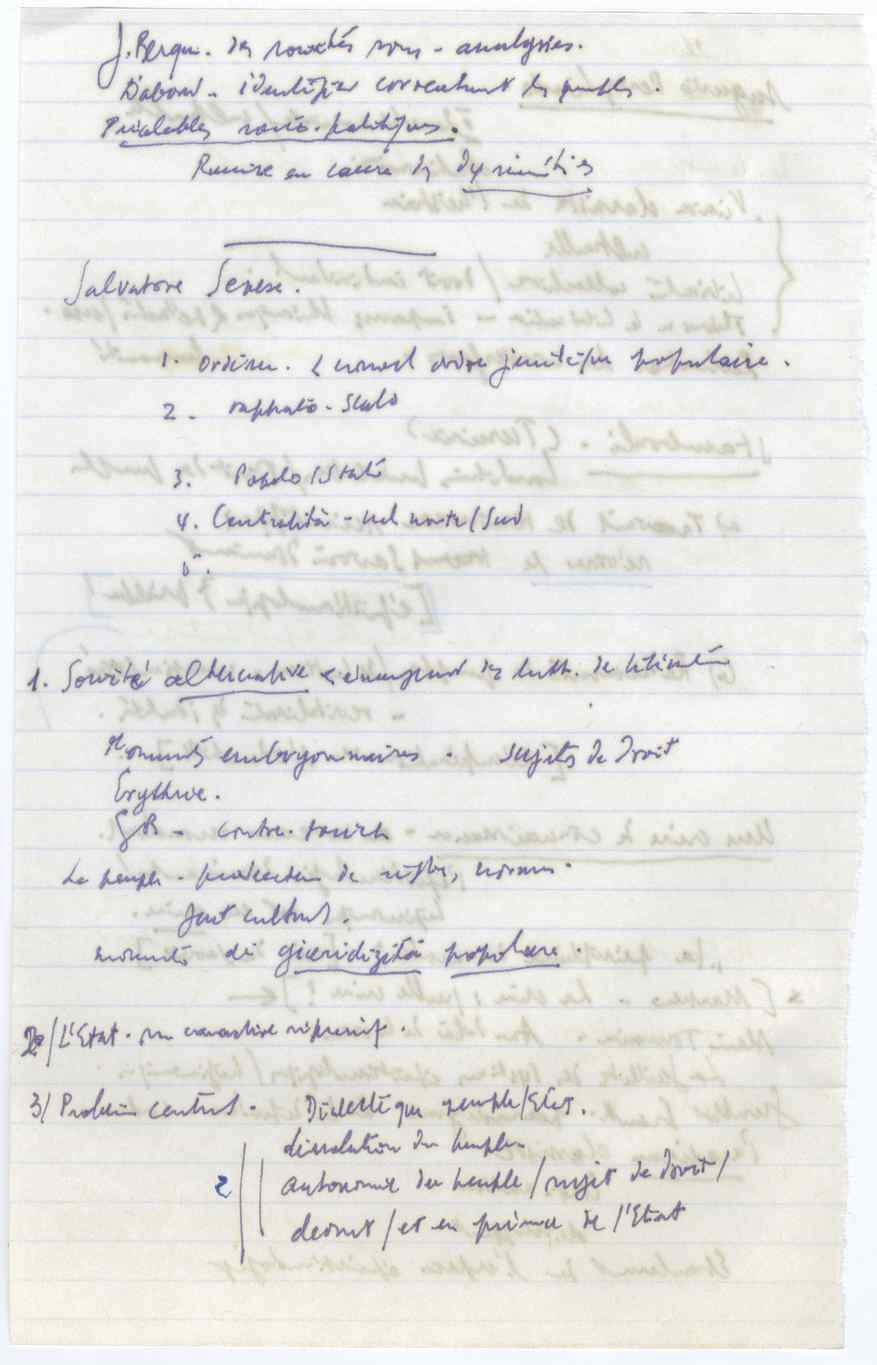 J. Berque. des sociétés sous-analysées.
D'abord - identifier correctement les peuples.
Préalables socio-politiques.
Remise en cause des
Salvatore Senese.
1. nouvel ordre juridique populaire.
2.
3. Popolo/Stato
4. Centralità - nel norte/Sud
5.
1. Société alternative < émergent des lutt. de libération
Moments embryonnaires. sujets de droit
Erythrée.
GB -
Le peuple - producteur de règles, normes.
fait culturel.
momento di giuridizità popolare.
2/ L'Etat. son caractère répressif.
3/ Problème central. Dialectique peuple/Etat.
dissolution du peuple
2 autonomie du peuple/sujet de droit/
devant/et en présence de l'Etat